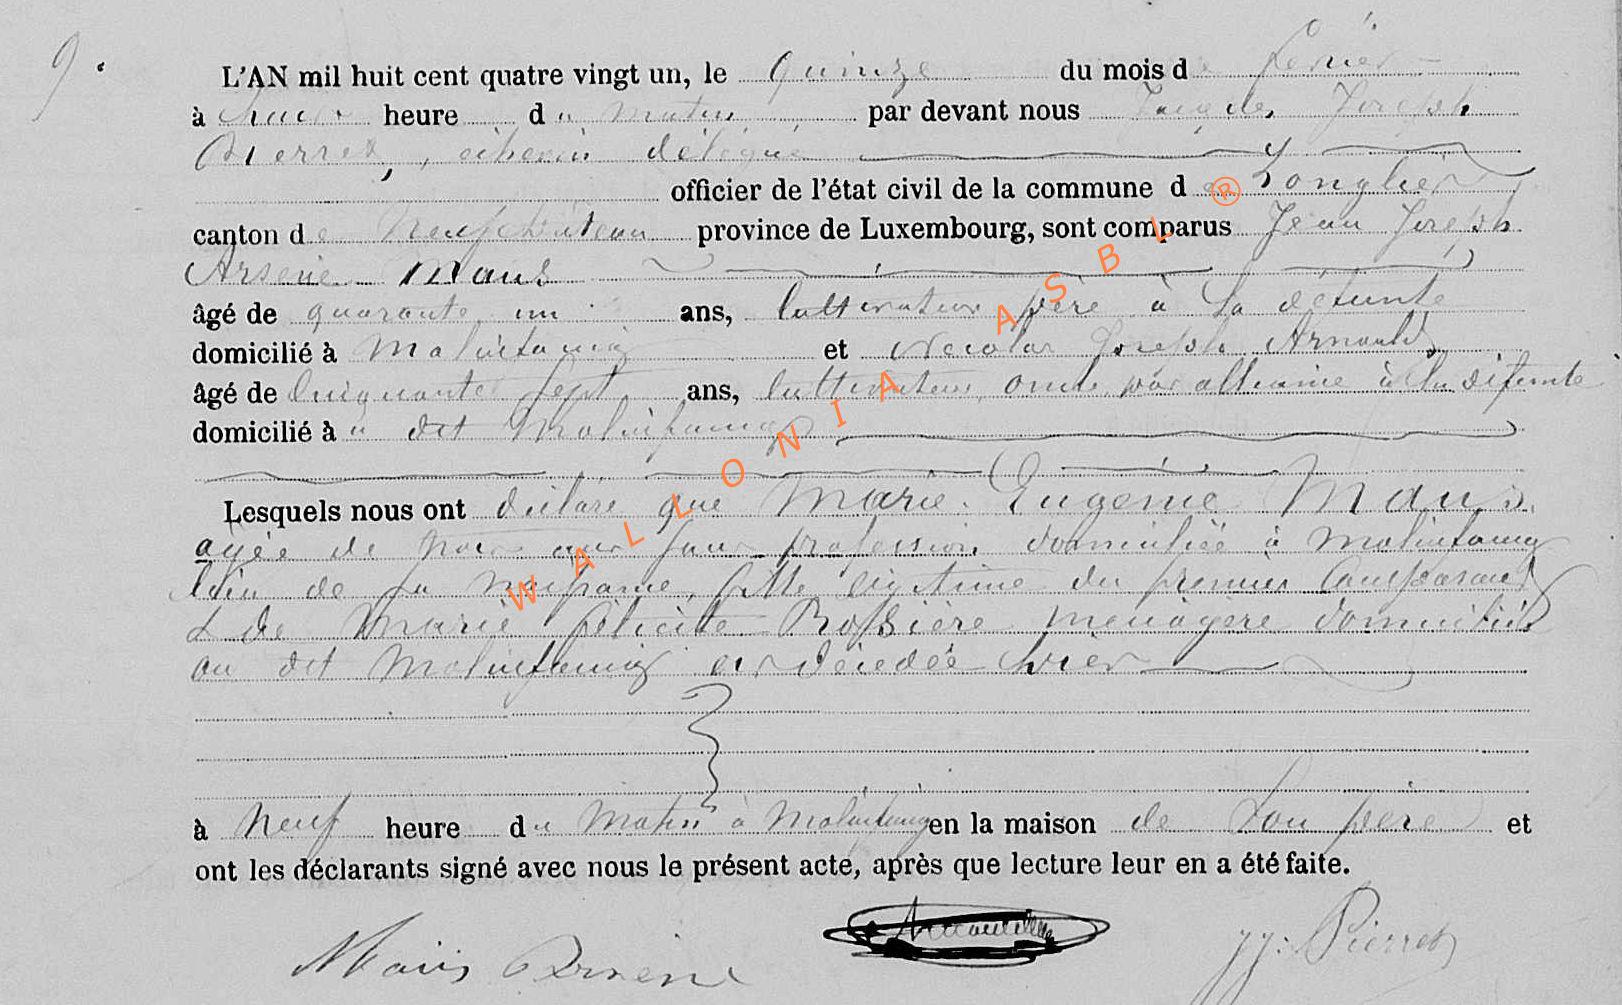 9.
L'AN mil huit cent quatre vingt un, le quinze du mois d février
à heure du matin par devant nous Jacques Joseph
Pierret, échevin délégué
officier de l'état civil de la commune de Longlier
canton de Neufchâteau province de Luxembourg, sont comparus Jean Joseph
Arsène Maus
âgé de quarante un ans, cultivateur père à la défunte
domicilié à Molinfaing et Nicolas Joseph Arnould
âgé de cinquante sept ans, cultivateur, oncle par alliance à la défunte
domicilié à u dit Molinfaing
Lesquels nous ont déclaré que Marie Eugénie Maus
agée de ans sans profession domiciliée à Molinfaing
lieu de sa naissance, fille légitime du premier comparant
& de Marie Félicité Rossière ménagère domiciliée
au dit Molinfaing est décédée hier
à neuf heure du matin à Molinfaing en la maison de son père et
ont les déclarants signé avec nous le présent acte, après que lecture leur en a été faite.
Maus Arsène JJ. Pierret
WALLONIA ASBL ®